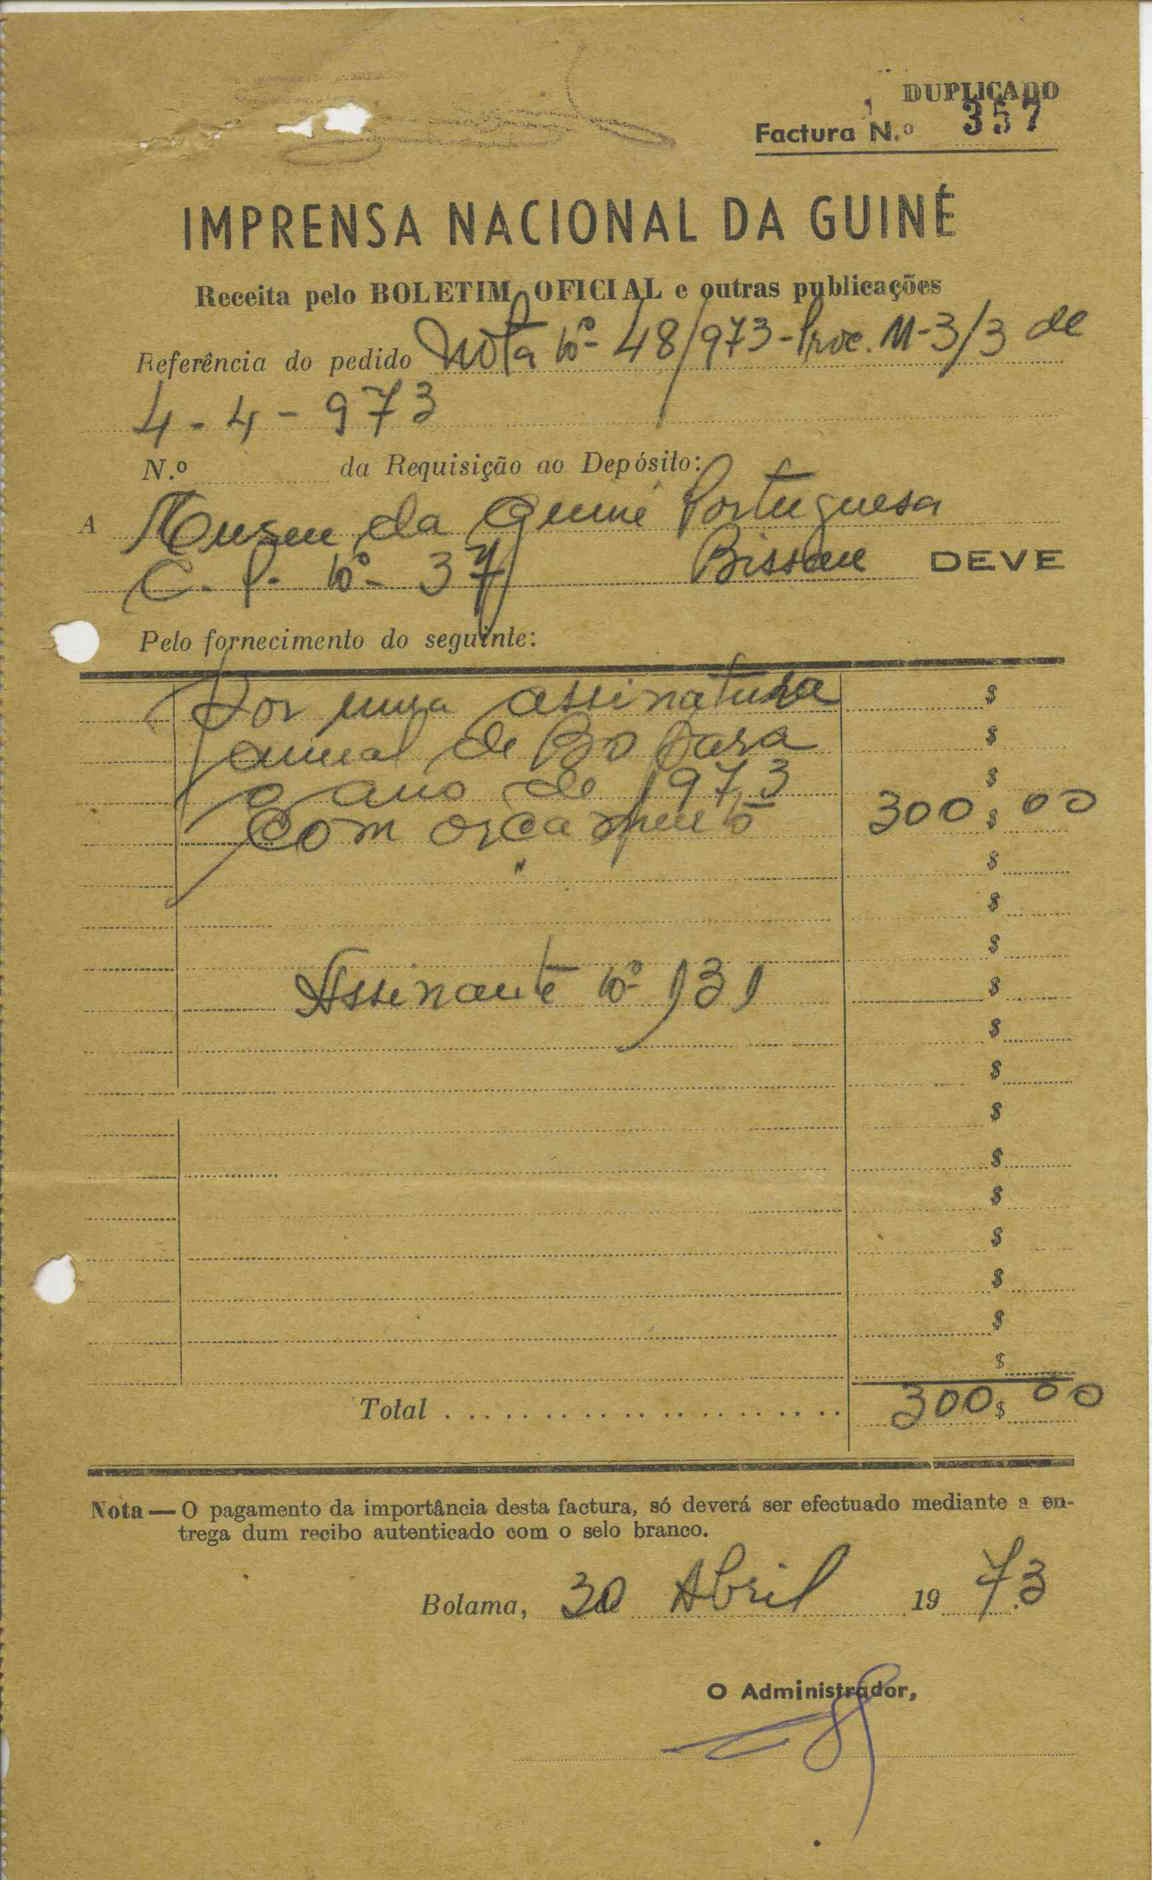 DUPLICADO
Factura N.º 357
IMPRENSA NACIONAL DA GUINÉ
Receita pelo BOLETIM OFICIAL e outras publicações
Referência do pedido Nota nº 48/973-Proc. M-3/3 de
4-4-973
N.º da Requisição ao Depósito:
A Museu da Guiné Portuguesa
C. P. nº 37 Bissau DEVE
Pelo fornecimento do seguinte:
Por uma assinatura $
anual de BO para $
o ano de 1973 $
com orçamento 300$00
$
$
$
Assinante nº 131 $
$
$
$
$
$
$
$
$
$
Total 300$00
Nota — O pagamento da importância desta factura, só deverá ser efectuado mediante a en-
trega dum recibo autenticado com o selo branco.
Bolama, 30 Abril 1973
O Administrador,